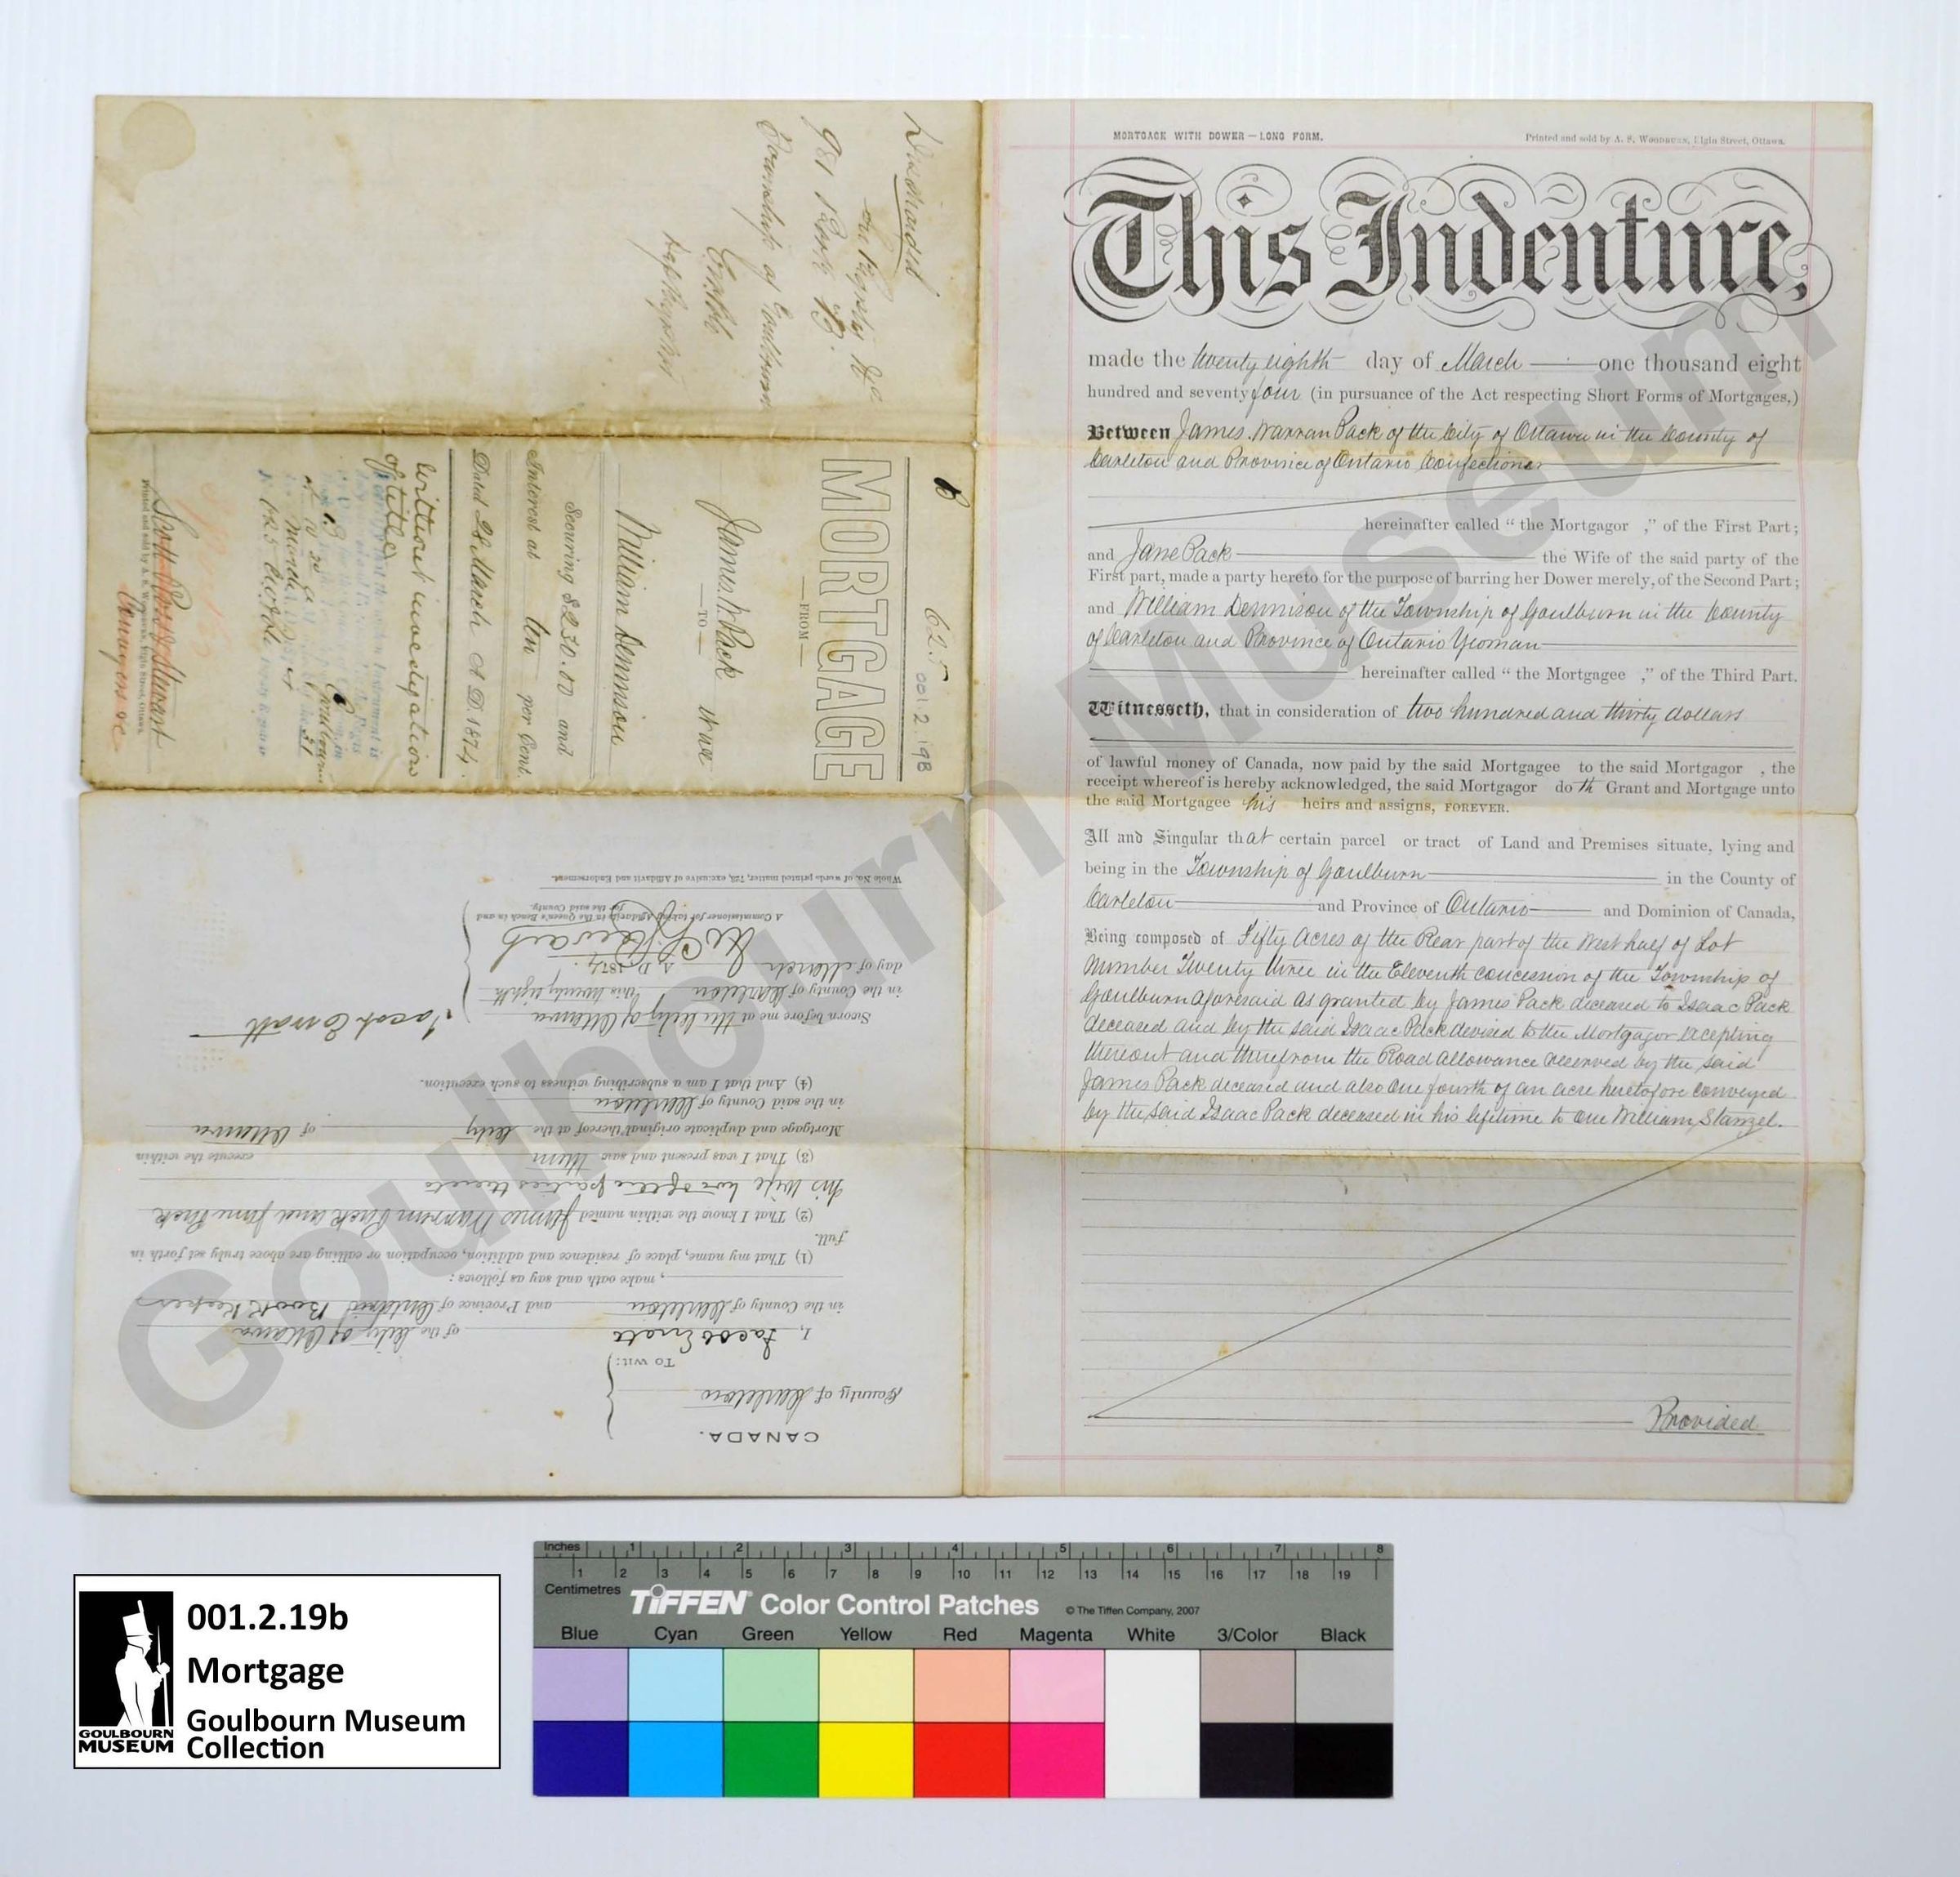 MORTGAGE WITH DOWER — LONG FORM.
Printed and sold by A. S. WOODBURN, Elgin Street, Ottawa.
This Indenture,
made the twenty eighth day of March one thousand eight
hundred and seventy four (in pursuance of the Act respecting Short Forms of Mortgages,)
Between James Warran Pack of the City of Ottawa in the County of
Carleton and Province of Ontario Confectioner
hereinafter called "the Mortgagor ," of the First Part;
and Jane Pack the Wife of the said party of the
First part, made a party hereto for the purpose of barring her Dower merely, of the Second Part;
and William Dennison of the Township of Goulburn in the County
of Carleton and Province of Ontario Yeoman
hereinafter called "the Mortgagee ," of the Third Part.
Witnesseth, that in consideration of two hundred and thirty dollars
of lawful money of Canada, now paid by the said Mortgagee to the said Mortgagor , the
receipt whereof is hereby acknowledged, the said Mortgagor doth Grant and Mortgage unto
the said Mortgagee his heirs and assigns, FOREVER.
All and Singular that certain parcel or tract of Land and Premises situate, lying and
being in the Township of Goulburn in the County of
Carleton and Province of Ontario and Dominion of Canada,
Being composed of Fifty Acres of the Rear part of the West half of Lot
Number Twenty three in the Eleventh concession of the Township of
Goulburn aforesaid as granted by James Pack deceased to Isaac Pack
deceased and by the said Isaac Pack devised to the Mortgagor excepting
thereout and therefrom the Road allowance reserved by the said
James Pack deceased and also One fourth of an acre heretofore conveyed
by the said Isaac Pack deceased in his lifetime to One William Stanzel.
Provided
the Registry
981 Book B.
Township of Goulburn
625
001.2.19B
MORTGAGE
FROM
James W. Pack
TO
William Dennison
Securing $230.00 and
Interest at ten per Cent.
Dated 28 March A D. 1874.
without investigation
of title
Scott Ross & Stewart
Printed and sold by A. S. Woodburn, Elgin Street, Ottawa.
CANADA.
County of Carleton
TO WIT:
I, Jacob Erratt of the City of Ottawa
in the County of Carleton and Province of Ontario Book Keeper
, make oath and say as follows:
(1) That my name, place of residence and addition, occupation or calling are above truly set forth in
full.
(2) That I know the within named James Warren Pack and Jane Pack
his wife two of the parties thereto
(3) That I was present and saw them execute the within
Mortgage and duplicate original thereof at the City of Ottawa
in the said County of Carleton
(4) And that I am a subscribing witness to such execution.
Sworn before me at the City of Ottawa
in the County of Carleton this twenty eighth
day of March A. D. 1874.
Jacob Erratt
A Commissioner for taking Affidavits in the Queen's Bench in and
for the said County.
Whole No. of words printed matter, 723, exclusive of Affidavit and Endorsement.
Goulbourn Museum
001.2.19b
Mortgage
Goulbourn Museum
Collection
GOULBOURN
MUSEUM
Inches 1 2 3 4 5 6 7 8
Centimetres 1 2 3 4 5 6 7 8 9 10 11 12 13 14 15 16 17 18 19
TIFFEN Color Control Patches © The Tiffen Company, 2007
Blue Cyan Green Yellow Red Magenta White 3/Color Black